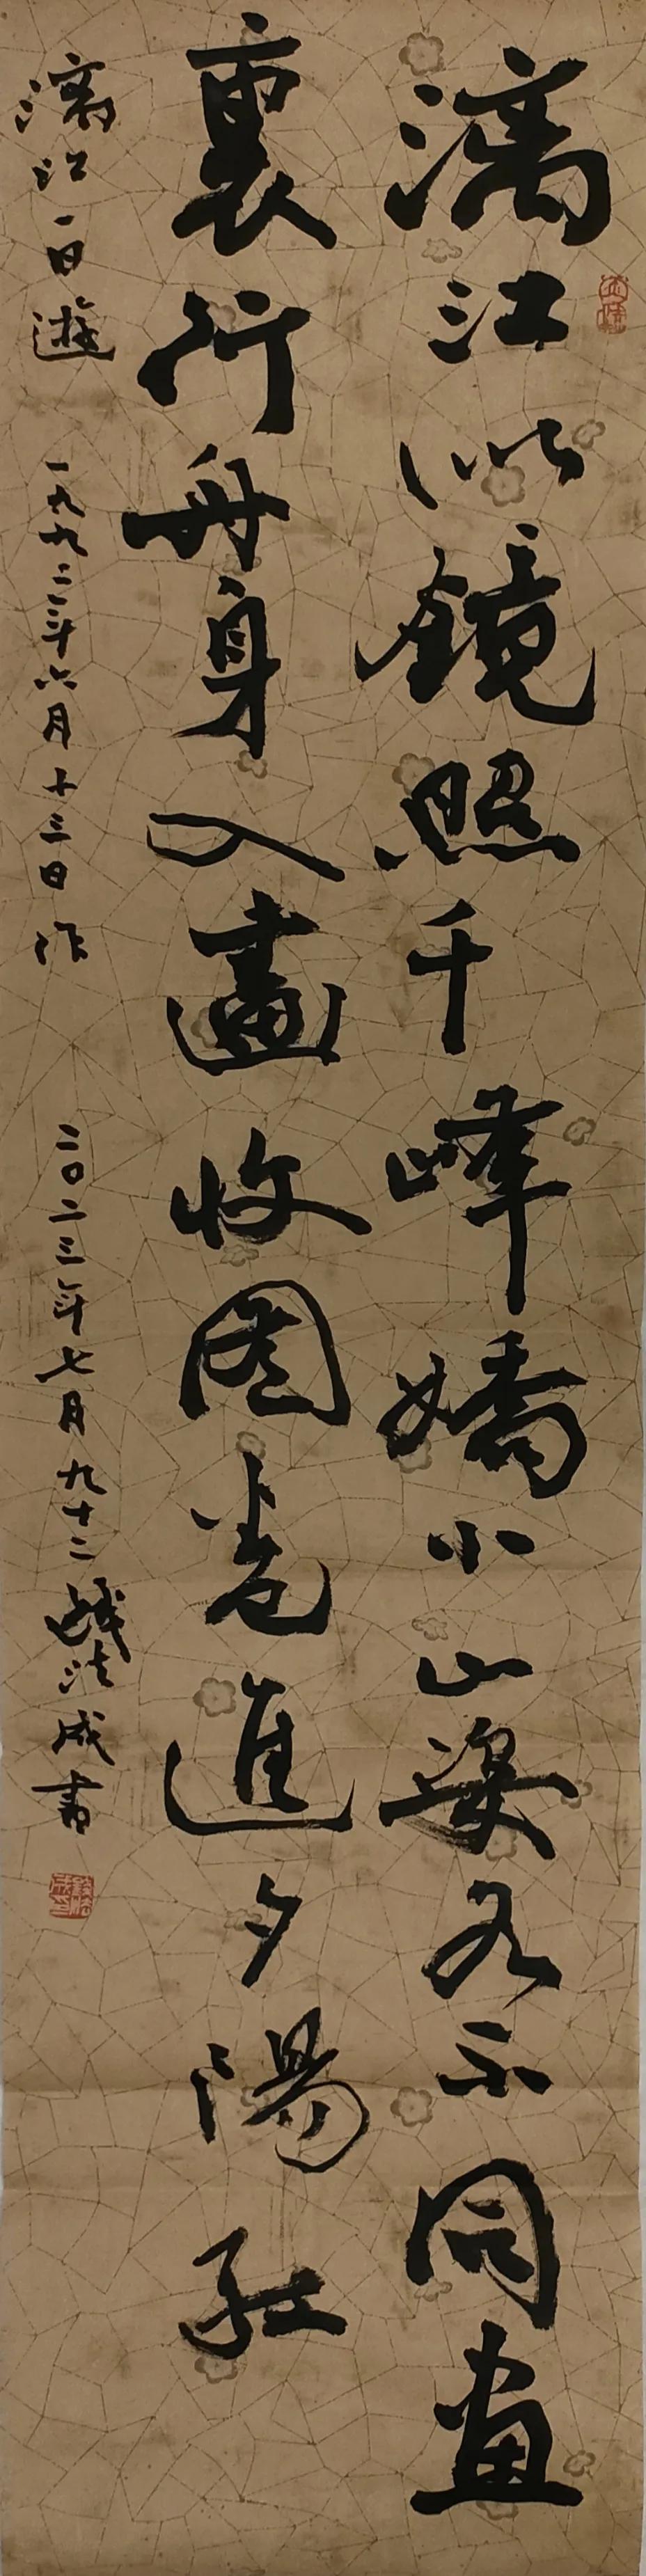 漓江似鏡照千峰嬌小山姿各不同畫
裏行舟身入畫收图卷進夕陽红
漓江一日遊 一九九二年六月十三日作 二〇二三年七月九十二 法成書